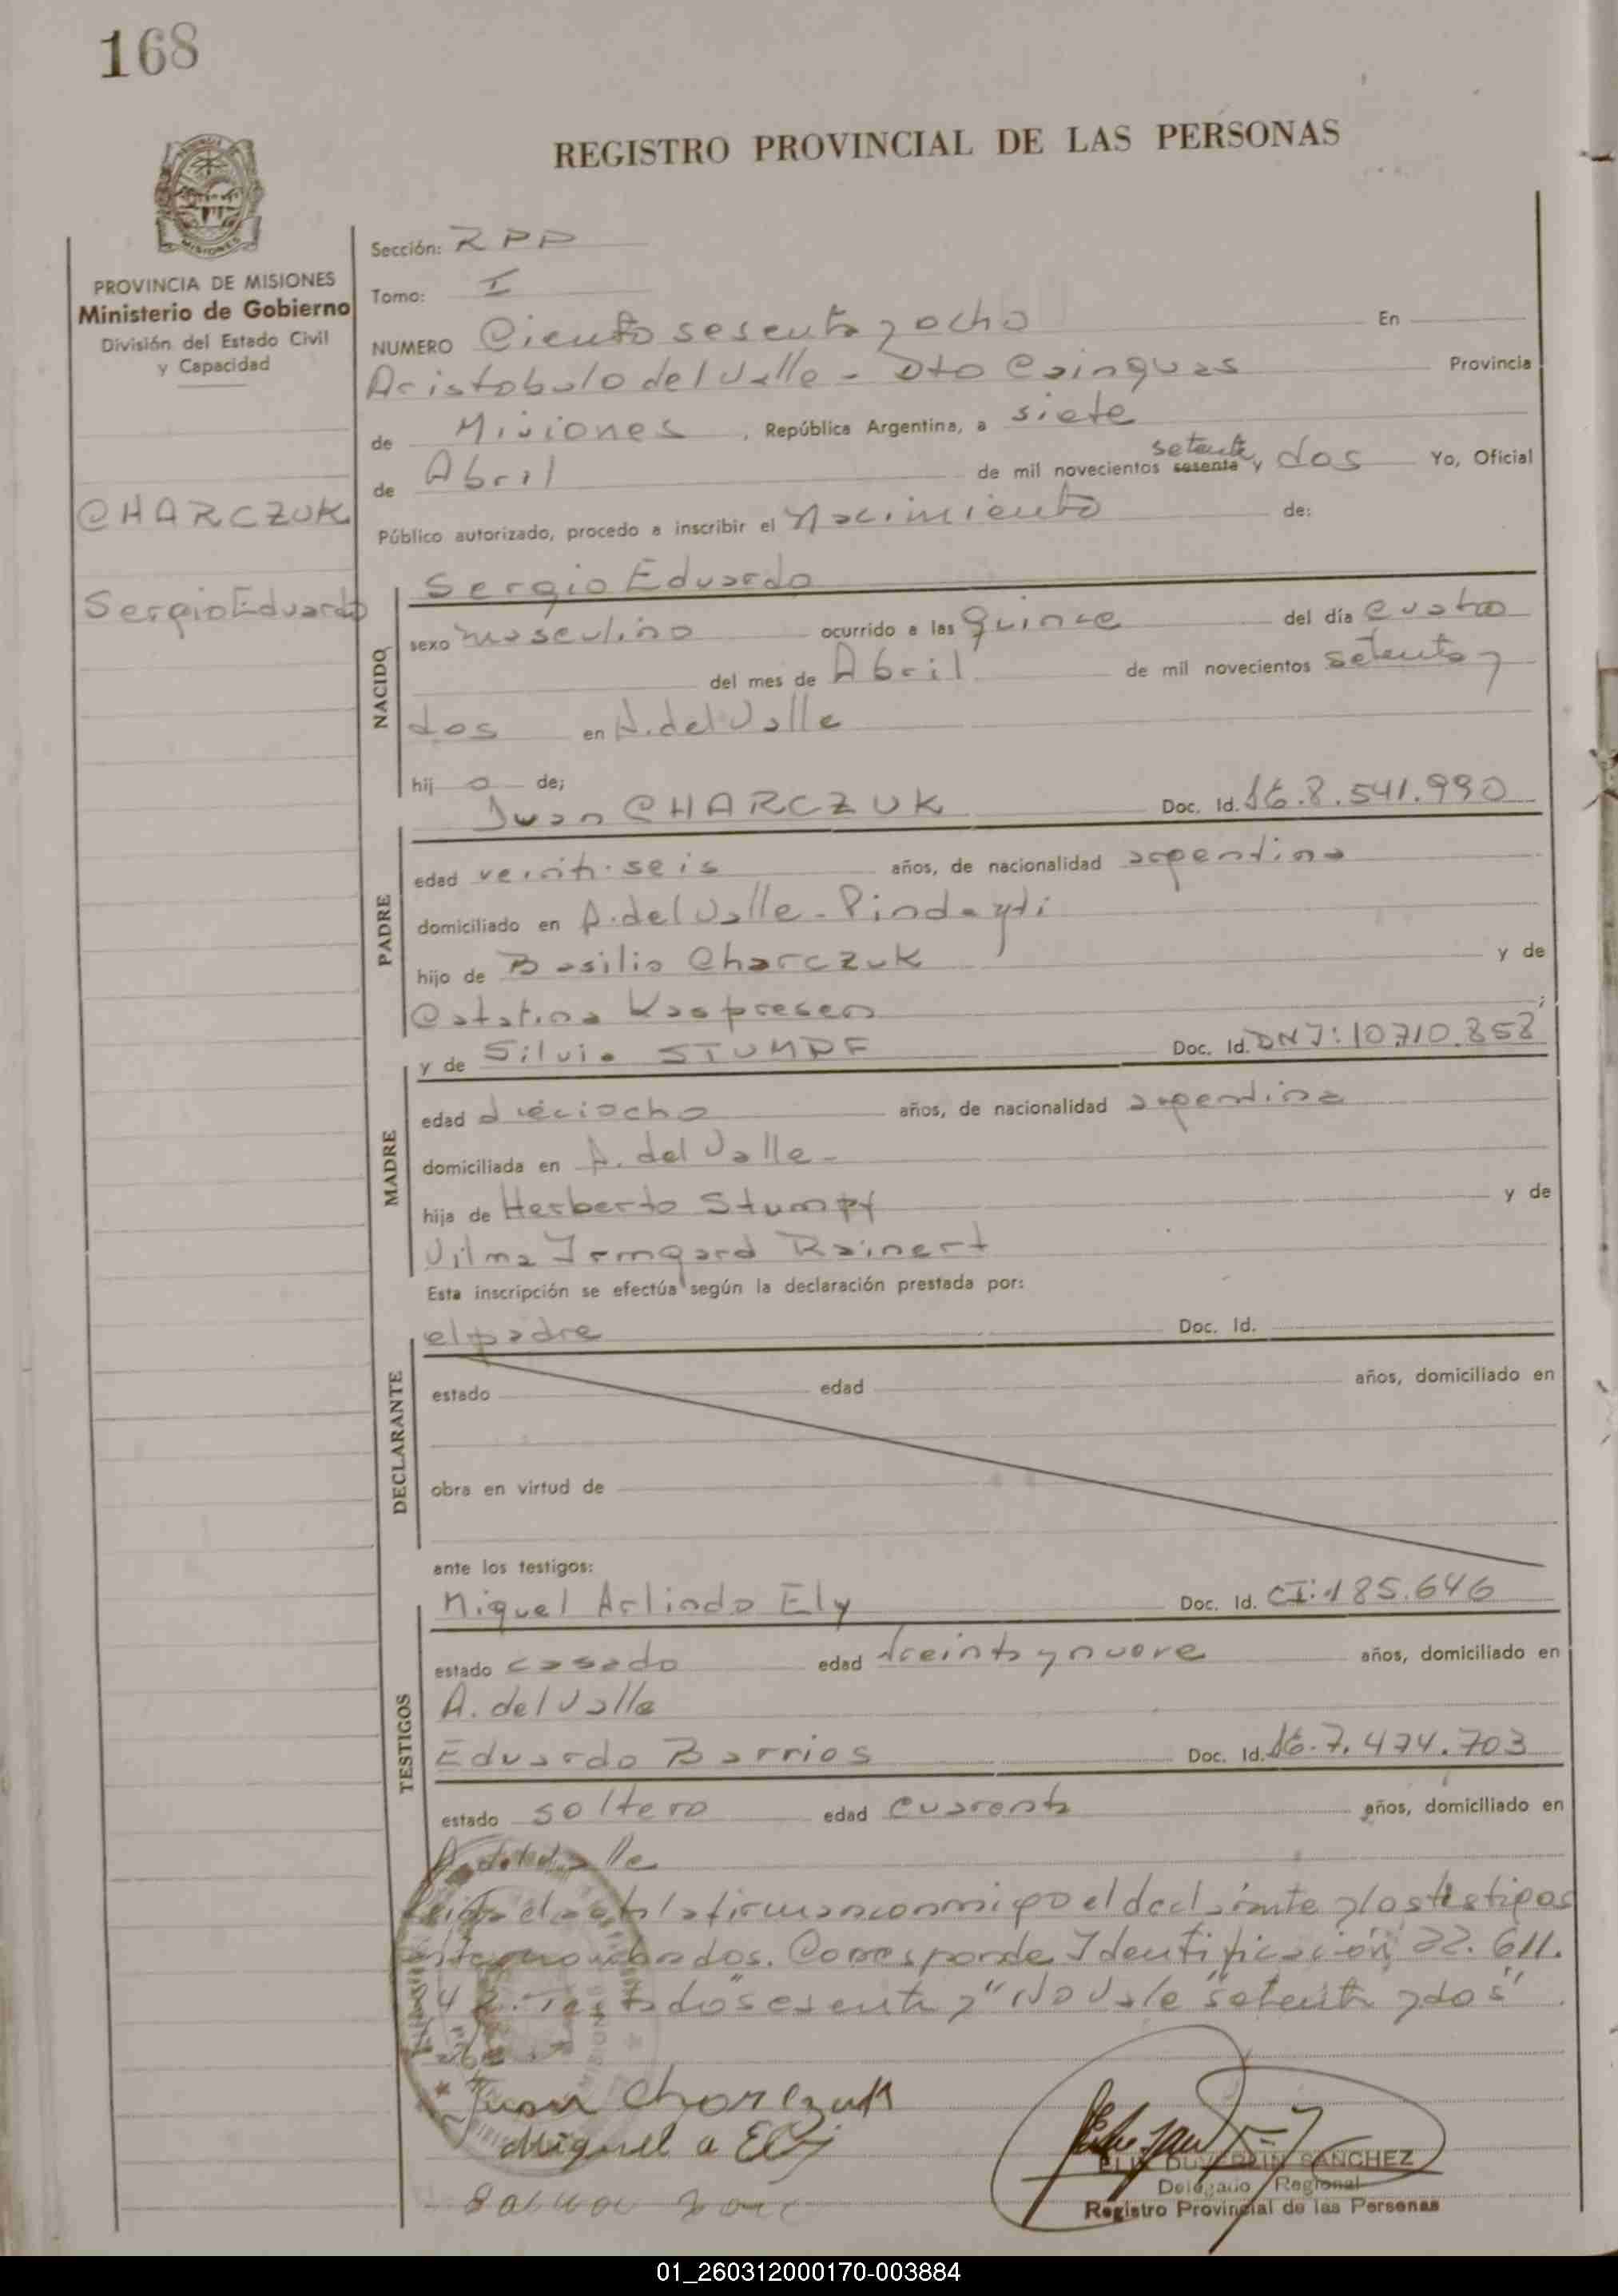 168
REGISTRO PROVINCIAL DE LAS PERSONAS
MISIONES
PROVINCIA DE MISIONES
Ministerio de Gobierno
División del Estado Civil
y Capacidad
CHARCZUK
Sergio Eduardo
Sección: RPP
Tomo: I
NUMERO Ciento sesenta y ocho En
Aristobulo del Valle - Dto Cainguas Provincia
de Misiones, República Argentina, a siete
de Abril de mil novecientos sesenta y setenta y dos Yo, Oficial
Público autorizado, procedo a inscribir el Nacimiento de:
NACIDO
Sergio Eduardo
sexo masculino ocurrido a las quince del día cuatro
del mes de Abril de mil novecientos setenta y
dos en A. del Valle
hij o de;
PADRE
Juan CHARCZUK Doc. Id. 16.8.541.990
edad veinti-seis años, de nacionalidad argentina
domiciliado en A. del Valle - Pindayti
hijo de Basilio Charczuk y de
Catalina
MADRE
y de Silvia STUMPF Doc. Id. DNI: 10.710.858
edad dieciocho años, de nacionalidad argentina
domiciliada en A. del Valle -
hija de Herberto Stumpf y de
Vilma Irmgard Rainert
Esta inscripción se efectúa según la declaración prestada por:
DECLARANTE
el padre Doc. Id.
estado edad años, domiciliado en
obra en virtud de
ante los testigos:
TESTIGOS
Miguel Arlindo Ely Doc. Id. CI: 185.646
estado casado edad treinta y nueve años, domiciliado en
A. del Valle
Eduardo Barrios Doc. Id. 16.7.474.703
estado soltero edad cuarenta años, domiciliado en
A. del Valle
Leida el acta la firman conmigo el declarante y los testigos
antenombrados. Corresponde Identificación 22.611.
Testado "sesenta y" No Vale "setenta y dos".
Juan Charczuk
Miguel a Ely
SANCHEZ
Delegado Regional
Registro Provincial de las Personas
01_260312000170-003884